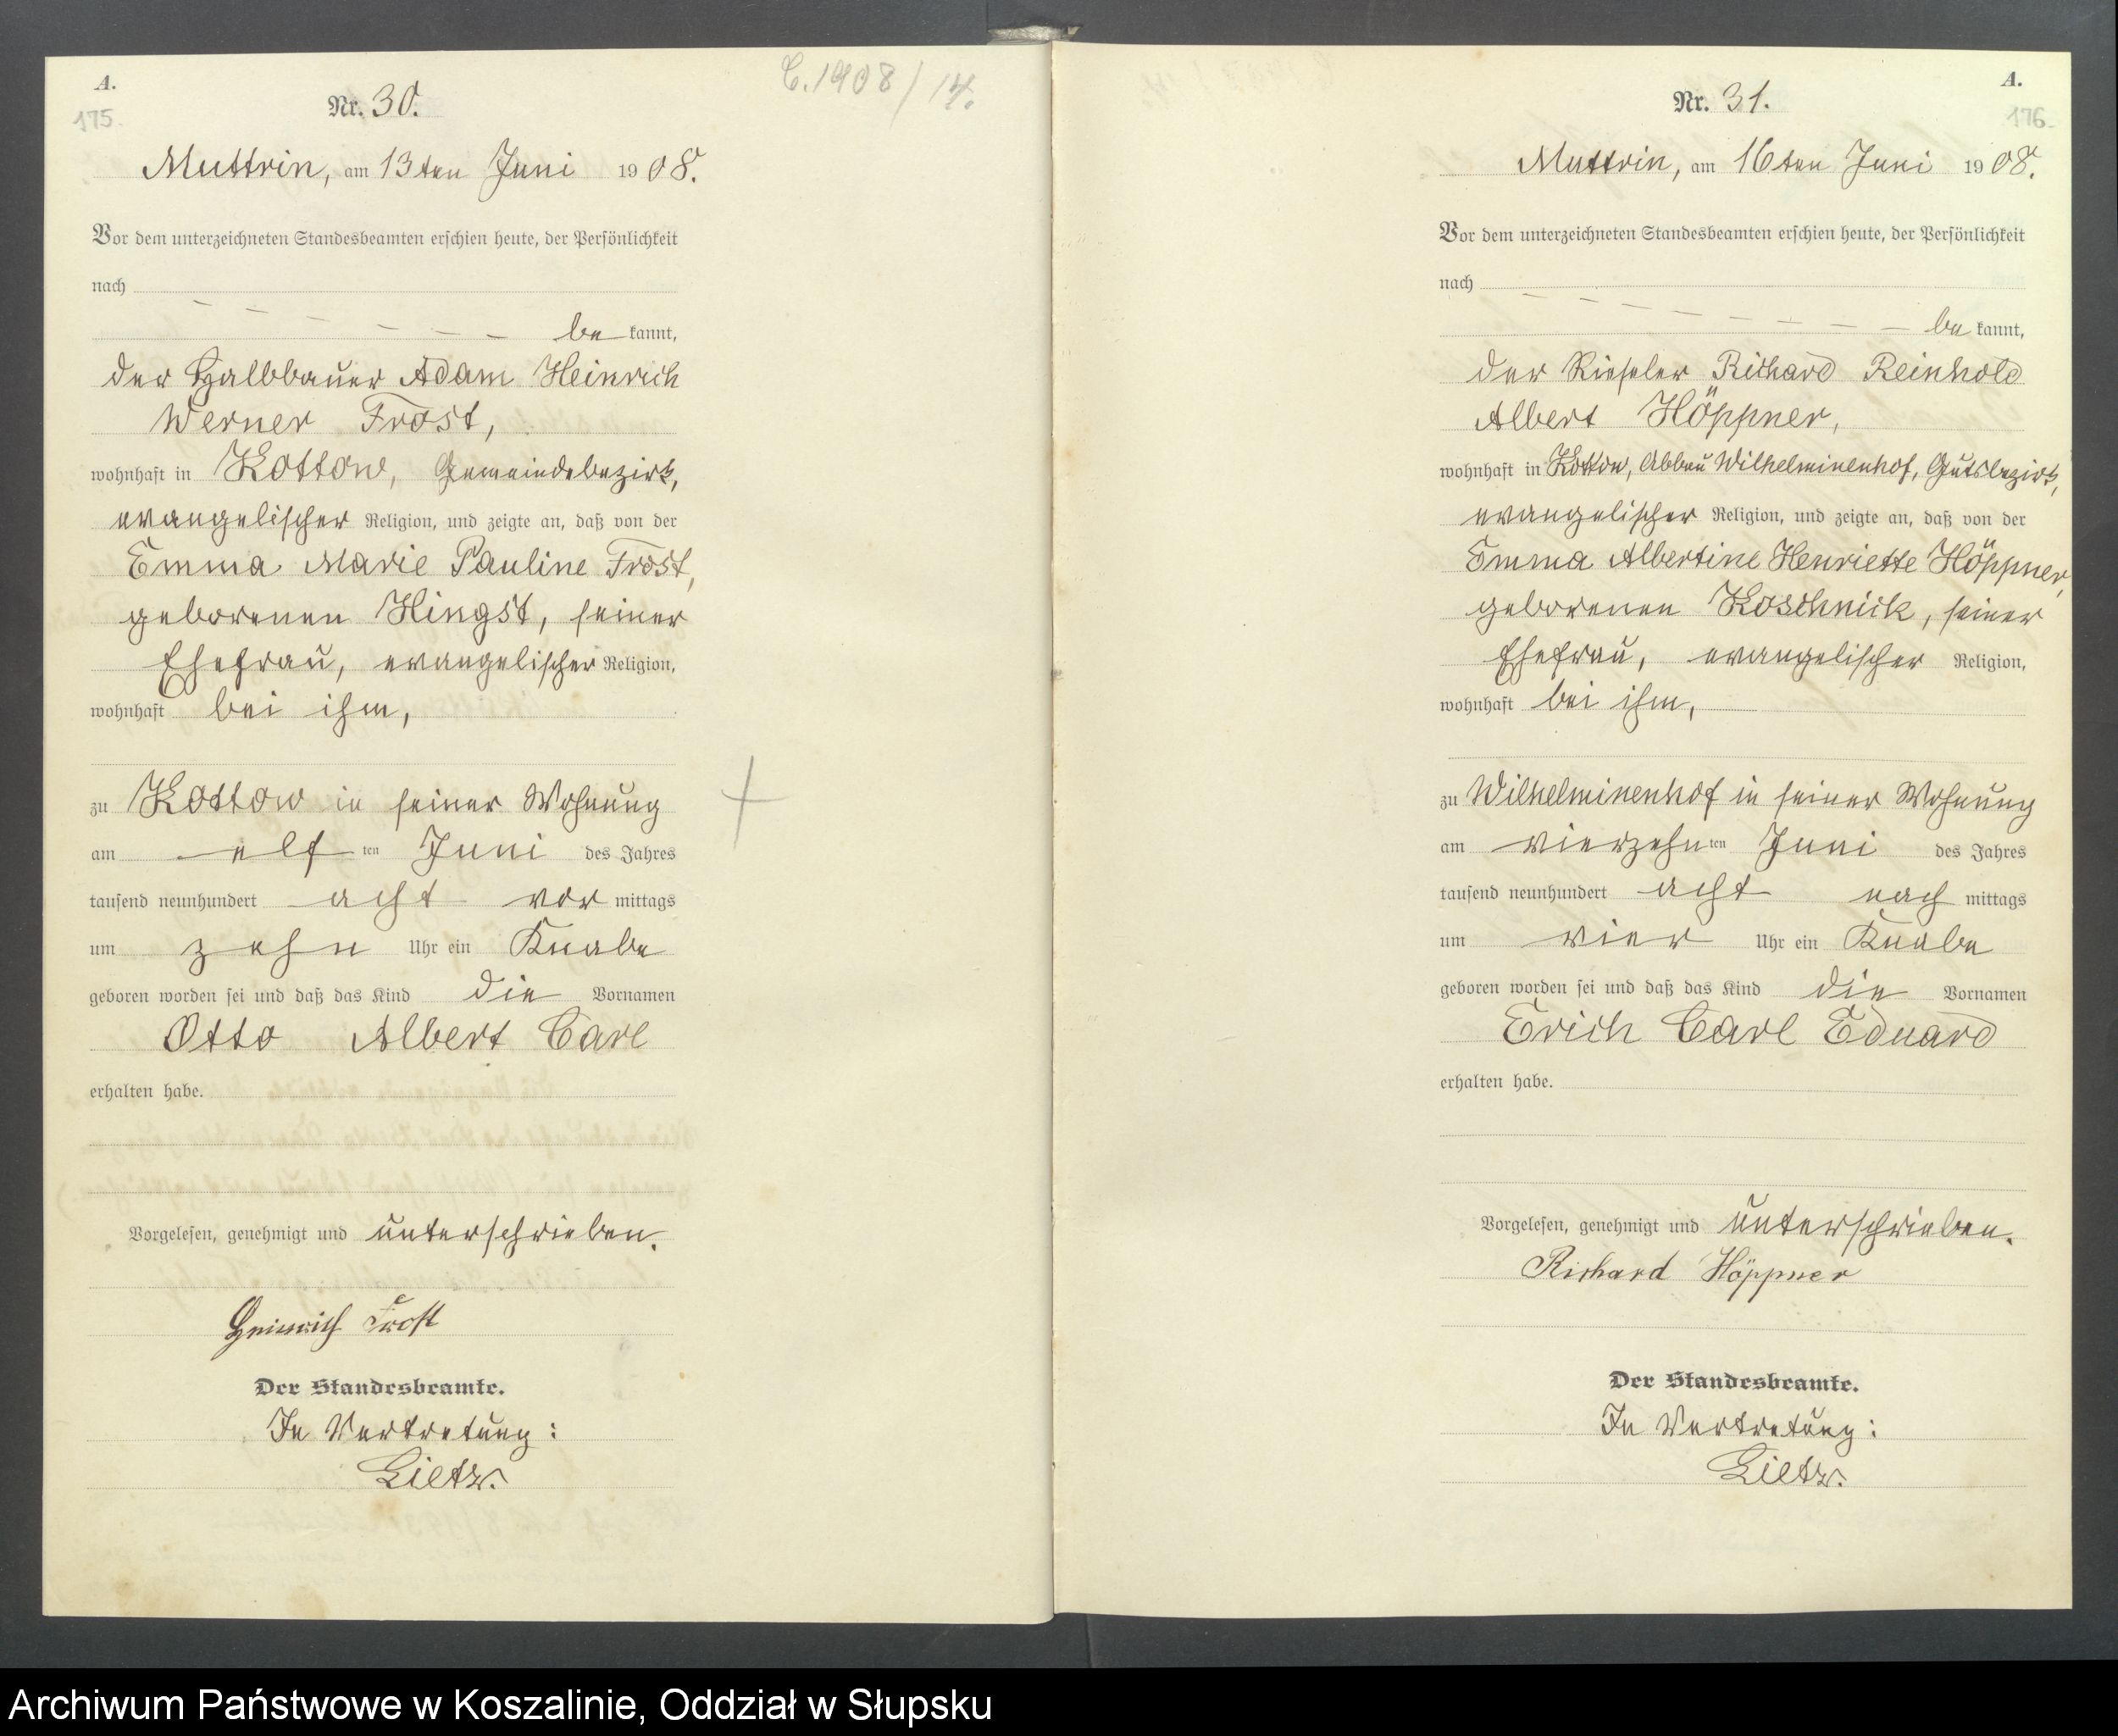 A.
175.
C.1908/14.
Nr. 30.
Muttrin, am 13ten Juni 1908.
Vor dem unterzeichneten Standesbeamten erschien heute, der Persönlichkeit
nach
be kannt,
der Halbbauer Adam Heinrich
Werner Frost,
wohnhaft in Kottow, Gemeindebezirk,
evangelischer Religion, und zeigte an, daß von der
Emma Marie Pauline Frost,
geborenen Hingst, seiner
Ehefrau, evangelischer Religion,
wohnhaft bei ihm,
zu Kottow in seiner Wohnung
am elf ten Juni des Jahres
tausend neunhundert acht vor mittags
um zehn Uhr ein Knabe
geboren worden sei und daß das Kind die Vornamen
Otto Albert Carl
erhalten habe.
Vorgelesen, genehmigt und unterschrieben.
Heinrich Frost
Der Standesbeamte.
In Vertretung:
Lietz.
A.
176.
Nr. 31.
Muttrin, am 16ten Juni 1908.
Vor dem unterzeichneten Standesbeamten erschien heute, der Persönlichkeit
nach
be kannt,
der Rieseler Richard Reinhold
Albert Höppner,
wohnhaft in Kottow, Abbau Wilhelminenhof, Gutsbezirk,
evangelischer Religion, und zeigte an, daß von der
Emma Albertine Henriette Höppner,
geborenen Koschnick, seiner
Ehefrau, evangelischer Religion,
wohnhaft bei ihm,
zu Wilhelminenhof in seiner Wohnung
am vierzehn ten Juni des Jahres
tausend neunhundert acht nach mittags
um vier Uhr ein Knabe
geboren worden sei und daß das Kind die Vornamen
Erich Carl Eduard
erhalten habe.
Vorgelesen, genehmigt und unterschrieben.
Richard Höppner
Der Standesbeamte.
In Vertretung:
Lietz.
Archiwum Państwowe w Koszalinie, Oddział w Słupsku